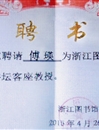 聘书
聘请 傅瑛 为浙江图
坛客座教授。
浙江图书馆
2010年4月2